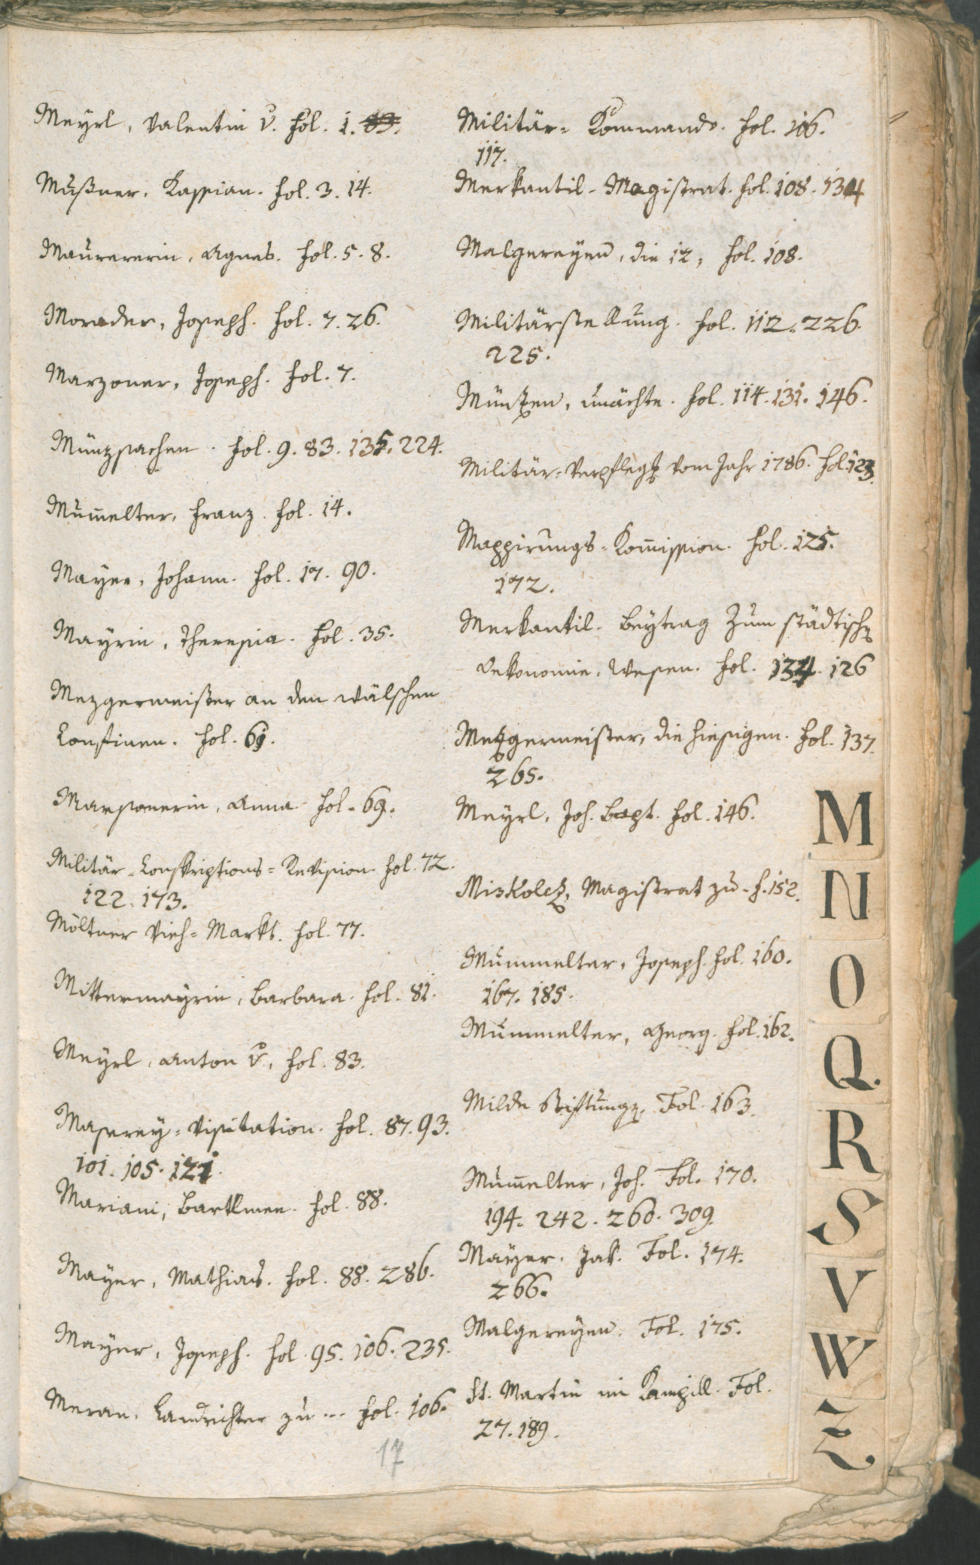 Meyrl, Valentin v. fol. 1. 83.
Mußner, Kassian. fol. 3. 14.
Maurererin, Agnes. fol. 5. 8.
Morader, Joseph. fol. 7. 26.
Marzoner, Joseph. fol. 7.
Münzsachen. fol. 9. 83. 135. 224.
Mum̅elter, Franz. fol. 14.
Mayer, Johann. fol. 17. 90.
Mayrin, Theresia. fol. 35.
Mezgermeister an den wälschen
Confinen. fol. 69.
Marsonerin, Anna. fol. 69.
Militär-Conskriptions-Revision fol. 72.
122. 173.
Möltner Vieh-Markt. fol. 77.
Mittermayrin, Barbara. fol. 81.
Meyrl, Anton v. fol. 83.
Maserey-Visitation. fol. 87. 93.
101. 105. 121.
Mariani, Bartlmee. fol. 88.
Mayer, Mathias. fol. 88. 286.
Mayer, Joseph. fol. 95. 106. 235.
Meran, Landrichter zu --- fol. 106.
17
Militär-Kommando. fol. 106.
117.
Merkantil-Magistrat. fol. 108. 134
Malgereyen, die 12, fol. 108.
Militärstellung. fol. 112. 226.
225.
Münzen, unächte. fol. 114. 131. 146.
Militär-Verpflegs vom Jahr 1786. fol. 123.
Mappirungs-Kom̅ission. fol. 125.
172.
Merkantil-Beytrag zum städtisch
Oekonomie-Wesen. fol. 134. 126
Mezgermeister, die hiesigen. fol. 137.
265.
Meyrl, Joh. Bapt. fol. 146.
Miskolcz, Magistrat zu - f. 152.
Mummelter, Joseph. fol. 160.
167. 185.
Mummelter, Georg. fol. 162.
Milde Stiftung. Fol. 163.
Mum̅elter, Joh. Fol. 170.
194. 242. 260. 309
Mayer. Jak. Fol. 174.
266.
Malgereyen. Fol. 175.
St. Martin in Kampill. Fol.
27. 189.
M
N
O
Q.
R
S
V
W
Z.